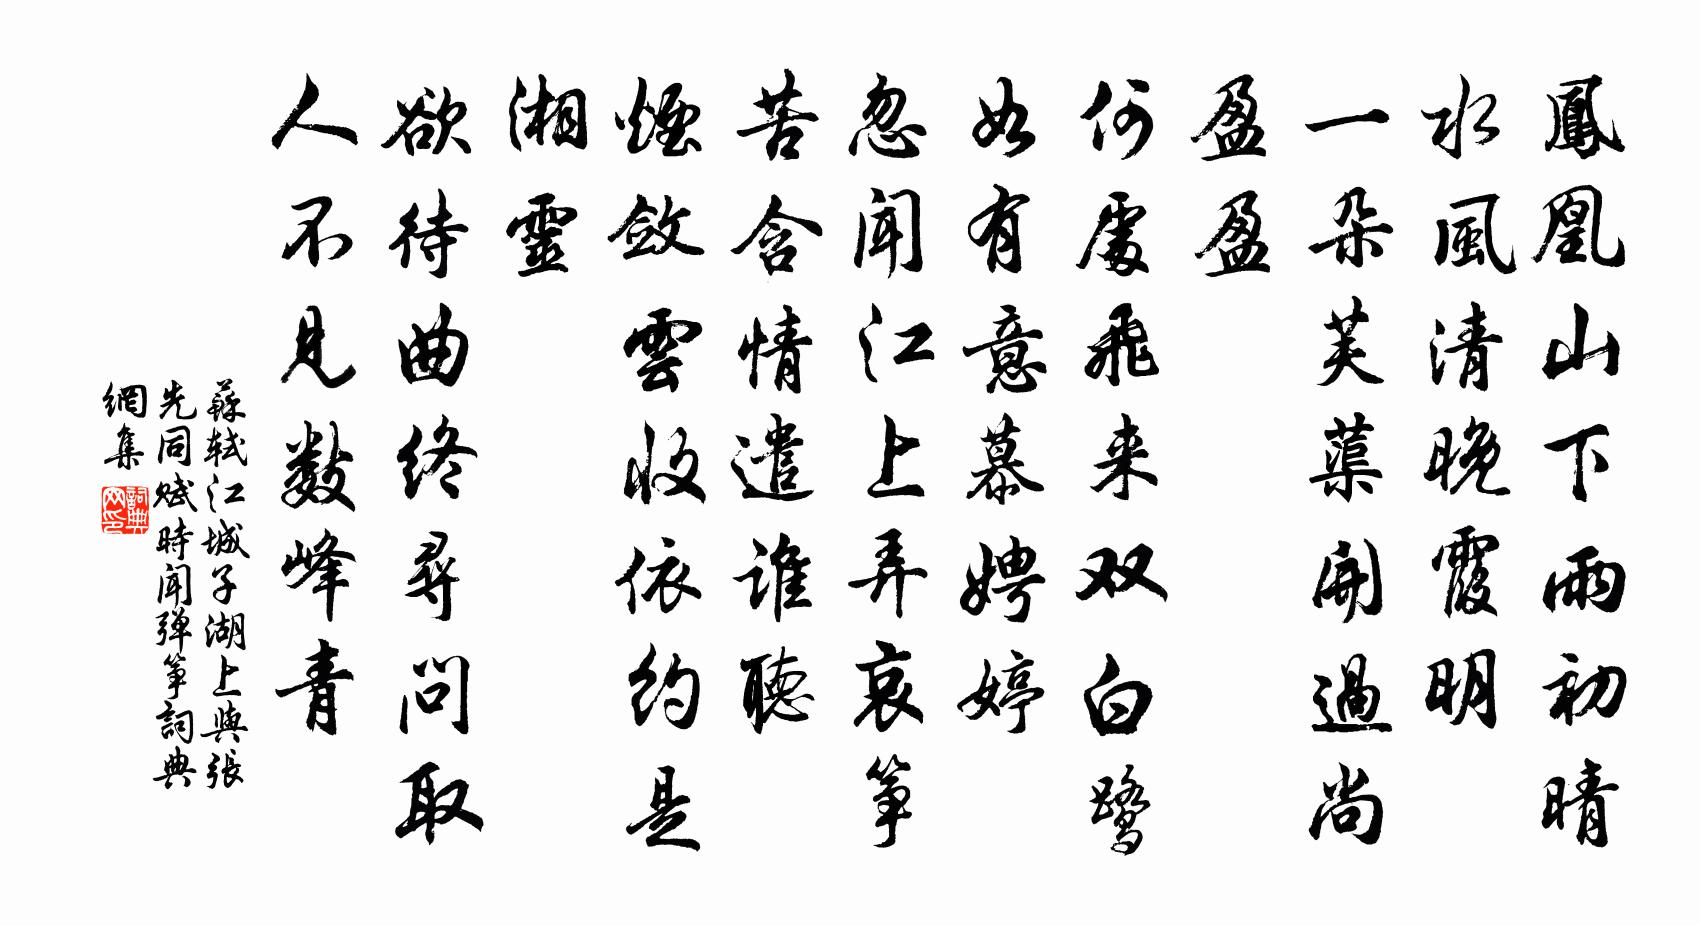 鳳凰山下雨初晴
水風清晚霞明
一朵芙蕖開過尚
盈盈
何處飛来双白鹭
如有意慕娉婷
忽闻江上弄哀筝
苦含情遣誰聽
煙斂雲收依约是
湘靈
欲待曲终尋问取
人不见數峰青
蘇轼江城子湖上與張
先同赋時闻弹筝詞典
網集
詞典网印